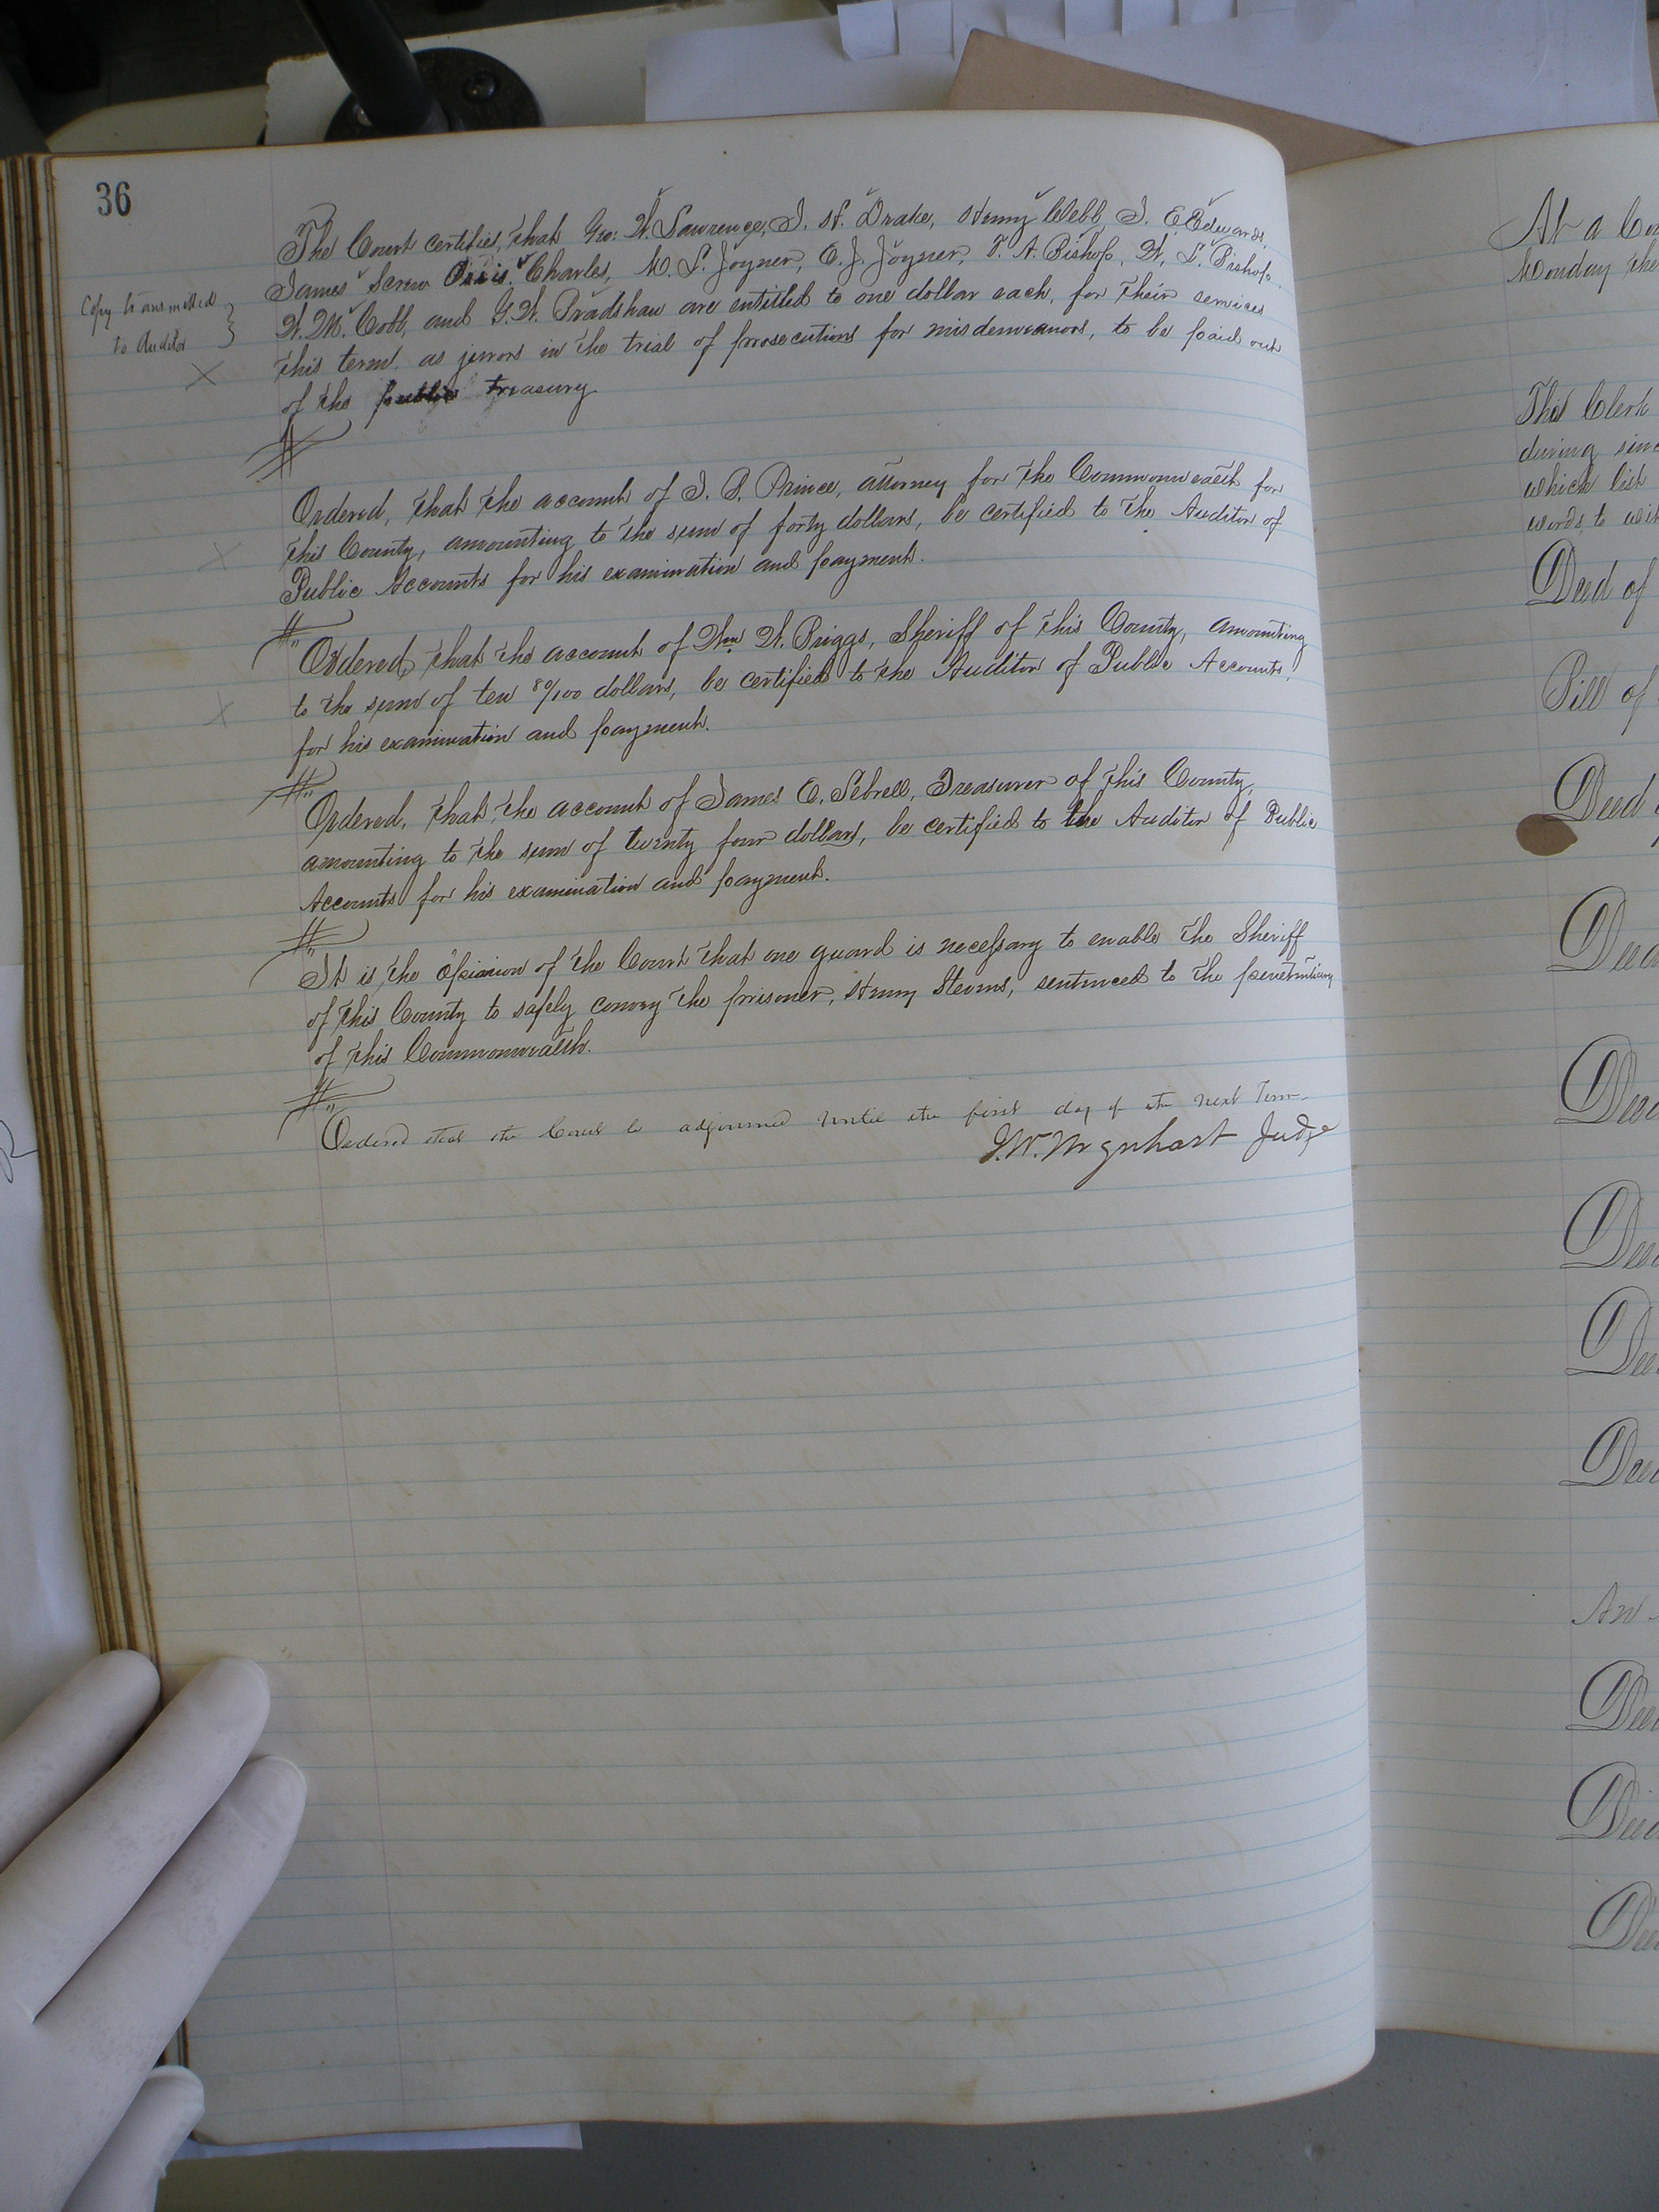 36
The Court certifies, that Geo: W. Lawrence, J. H. Drake, Henry Webb, J. E Edwards,
James Screw Charles, M. L. Joyner, O. J. Joyner, T. A. Bishop, W. L. Bishop,
Copy transmitted
W. M. Cobb, and G. W. Bradshaw are entitled to one dollar each, for their services
to Auditor
this term, as jurors in the trial of prosecutions for misdemeanors, to be paid out
X
of the public treasury
Ordered, that the account of J. B. Prince, attorney for the Commonwealth for
this County, amounting to the sum of forty dollars, be certified to the Auditor of
X
Public Accounts for his examination and payment.
Ordered, that the account of Wm. W. Briggs, Sheriff of this County, amounting
to the sum of ten 80/100 dollars, be certified to the Auditor of Public Accounts,
X
for his examination and payment.
Ordered, that, the account of James E. Sebrell, Treasurer of this County,
amounting to the sum of twenty four dollars, be certified to the Auditor of Public
Accounts for his examination and payment.
It is, the opinion of the Court that one guard is necessary to enable the Sheriff
of this County to safely convey the prisoner, Henry Stevens, sentenced to the penetentiary
of this Commonwealth.
Ordered that the Court be adjourned until the first day of the next Term
Judge
At a Cou
Monday the
The Clerk
during sinc
which list
words, to wit
Deed of
Bill of
Deed
Deed
Deed